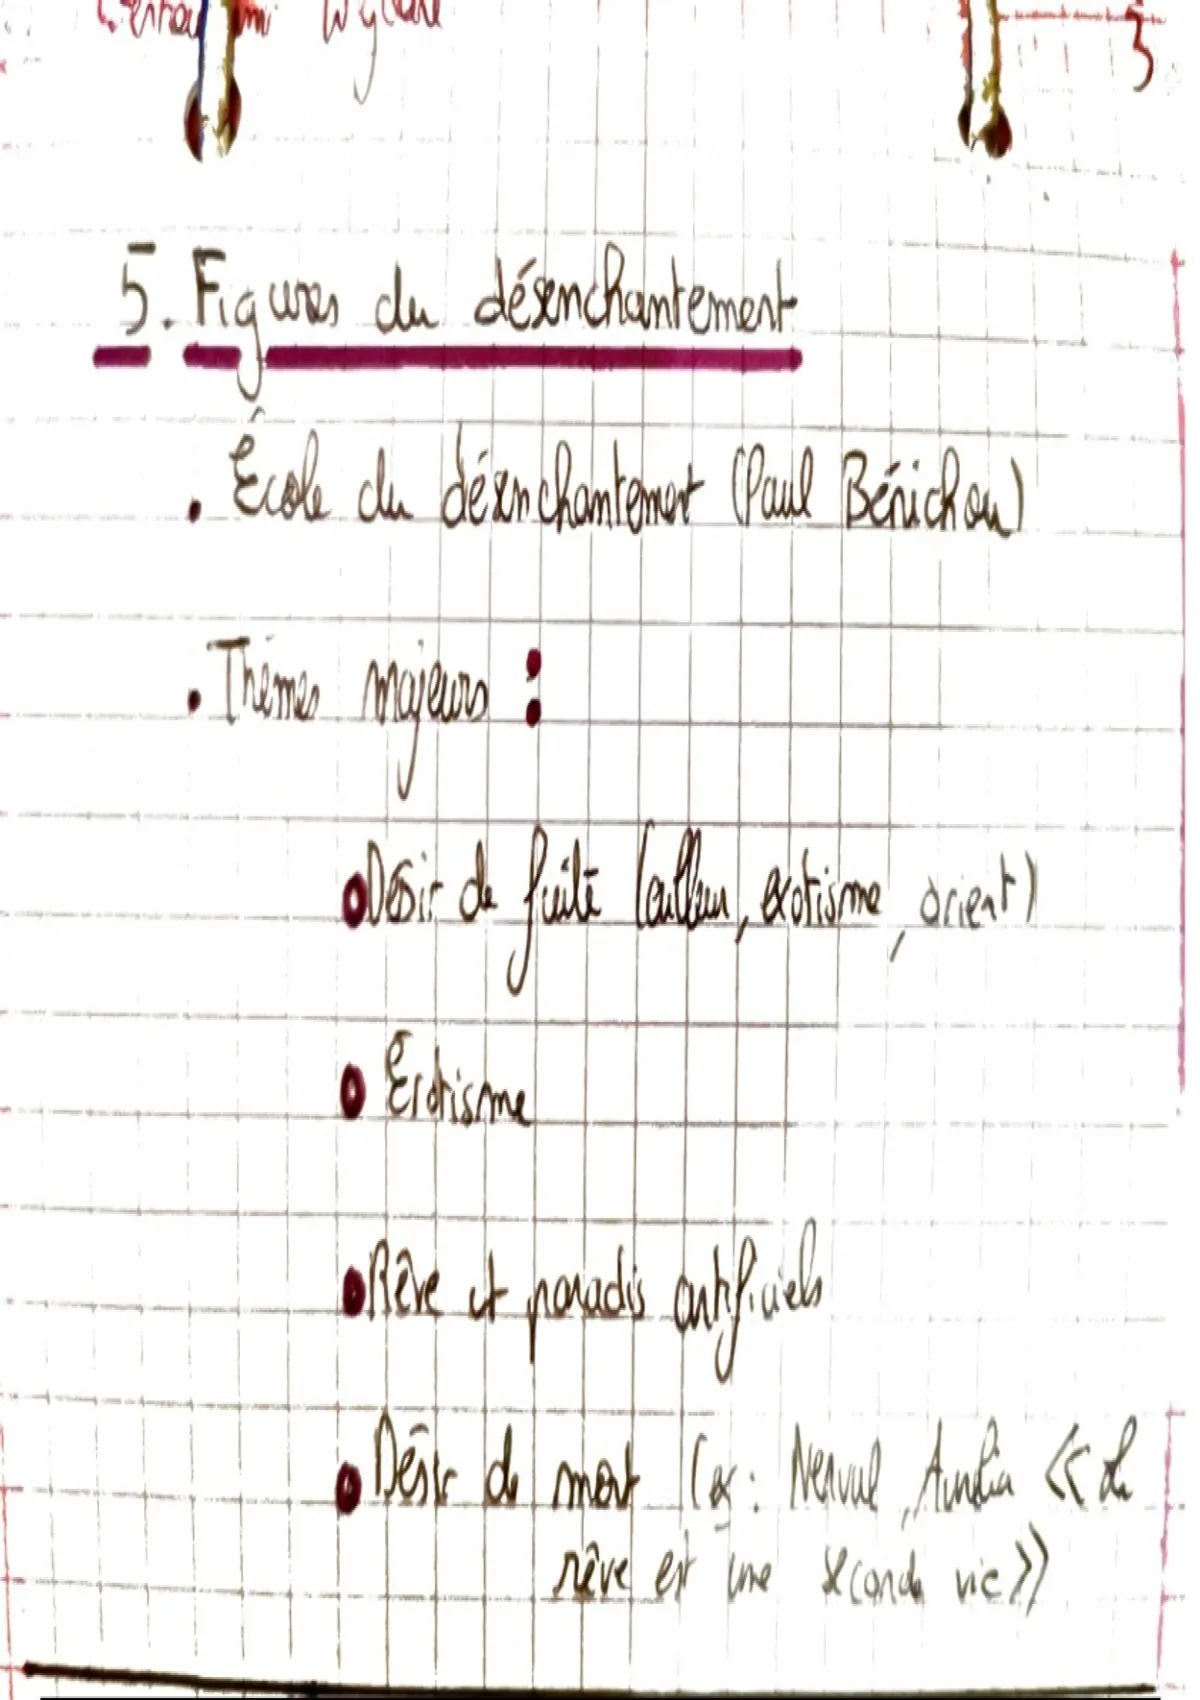 3
5. Figures du désenchantement
. École du désenchantement (Paul Bénichou)
. Thèmes majeurs :
Désir de fuite (ailleurs, exotisme, orient)
Érotisme
Rêve et paradis artificiels
Désir de mort (ex : Nerval, Aurélia << Le
rêve est une seconde vie >>